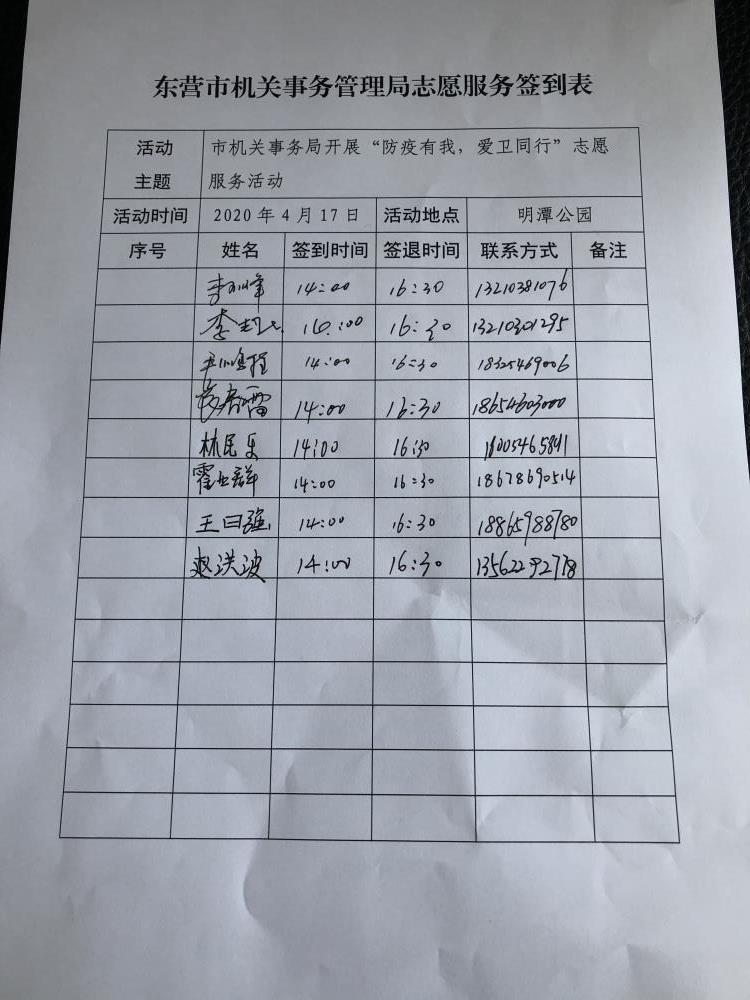 东营市机关事务管理局志愿服务签到表
活动主题 市机关事务局开展“防疫有我，爱卫同行”志愿
服务活动
活动时间 2020年4月17日 活动地点 明潭公园
序号 姓名 签到时间 签退时间 联系方式 备注
14:00 16:30 13210381076
16:30 13210301295
14:00 16:30 18325469006
14:00 16:30 18654603000
林民乐 14:00 16:30
14:00 16:30 18678690514
王曰强 14:00 16:30 18865988780
赵洪波 14:00 16:30